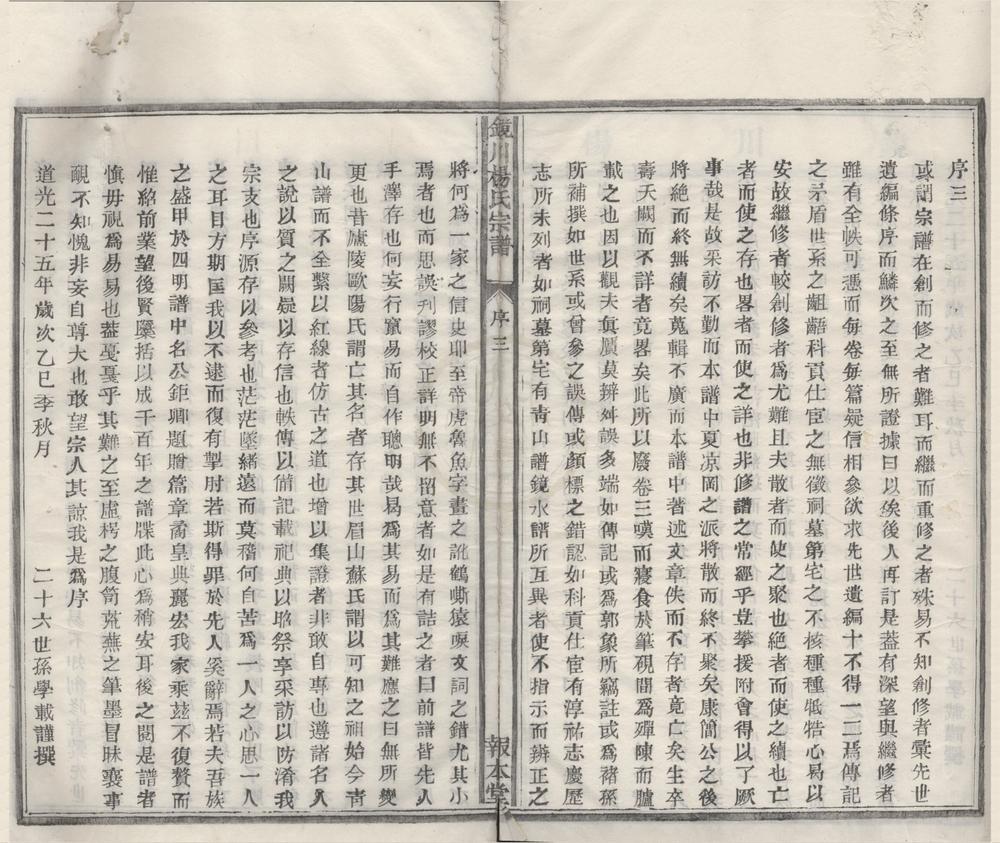 序三
或謂宗譜在創而修之者難耳而繼而重修之者殊易不知創修者彙先世
遺編條序而鱗次之至無所證據曰以俟後人再訂是蓋有深望與繼修者
雖有全帙可憑而每卷每篇疑信相參欲求先世遺編十不得一二焉傳記
之矛盾世系之齟齬科貢仕宦之無徵祠墓第宅之不核種種牴牾心易以
安故繼修者較創修者爲尤難且夫散者而使之聚也絕者而使之續也亡
者而使之存也畧者而使之詳也非修譜之常經乎豈攀援附會得以了厥
事哉是故采訪不勤而本譜中夏凉岡之派將散而終不聚矣康簡公之後
將絕而終無續矣蒐輯不廣而本譜中著述文章佚而不存者竟亡矣生卒
壽夭闕而不詳者竟畧矣此所以廢卷三嘆而寢食於筆硯間爲殫陳而臚
載之也因以觀夫眞贗莫辨舛誤多端如傳記或爲郭象所竊註或爲褚孫
所補撰如世系或曾參之誤傳或顏標之錯認如科貢仕宦有淳祐志慶歷
志所未列者如祠墓第宅有靑山譜鏡水譜所互異者使不指示而辨正之
鏡川楊氏宗譜
序三
報本堂
將何爲一家之信史耶至帝虎魯魚字畫之訛鶴嘶猿唳文詞之錯尤其小
焉者也而思誤刋謬校正詳明無不留意者如是有詰之者曰前譜皆先人
手澤存也何妄行竄易而自作聰明哉易爲其易而爲其難應之曰無所變
更也昔廬陵歐陽氏謂亡其名者存其世眉山蘇氏謂以可知之祖始今靑
山譜而不全繫以紅線者仿古之道也增以集證者非敢自專也遵諸名人
之說以質之闕疑以存信也軼傳以備記載祀典以昭祭享采訪以防淆我
宗支也序源存以參考也茫茫墜緒遠而莫稽何自苦爲一人之心思一人
之耳目方期匡我以不逮而復有掣肘若斯得罪於先人奚辭焉若夫吾族
之盛甲於四明譜中名公鉅卿題贈篇章矞皇典麗宏我家乘茲不復贅而
惟紹前業望後賢檃括以成千百年之譜牒此心爲稍安耳後之閱是譜者
愼毋視爲易易也蓋戛戛乎其難之至虛枵之腹笥荒蕪之筆墨冒昧襄事
靦不知愧非妄自尊大也敢望宗人其諒我是爲序
道光二十五年歲次乙巳季秋月 二十六世孫學載謹撰